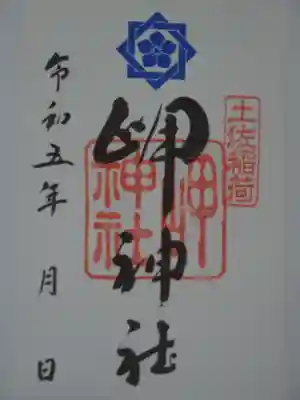 土佐稲荷
岬神社
岬神社
令和五年 月 日